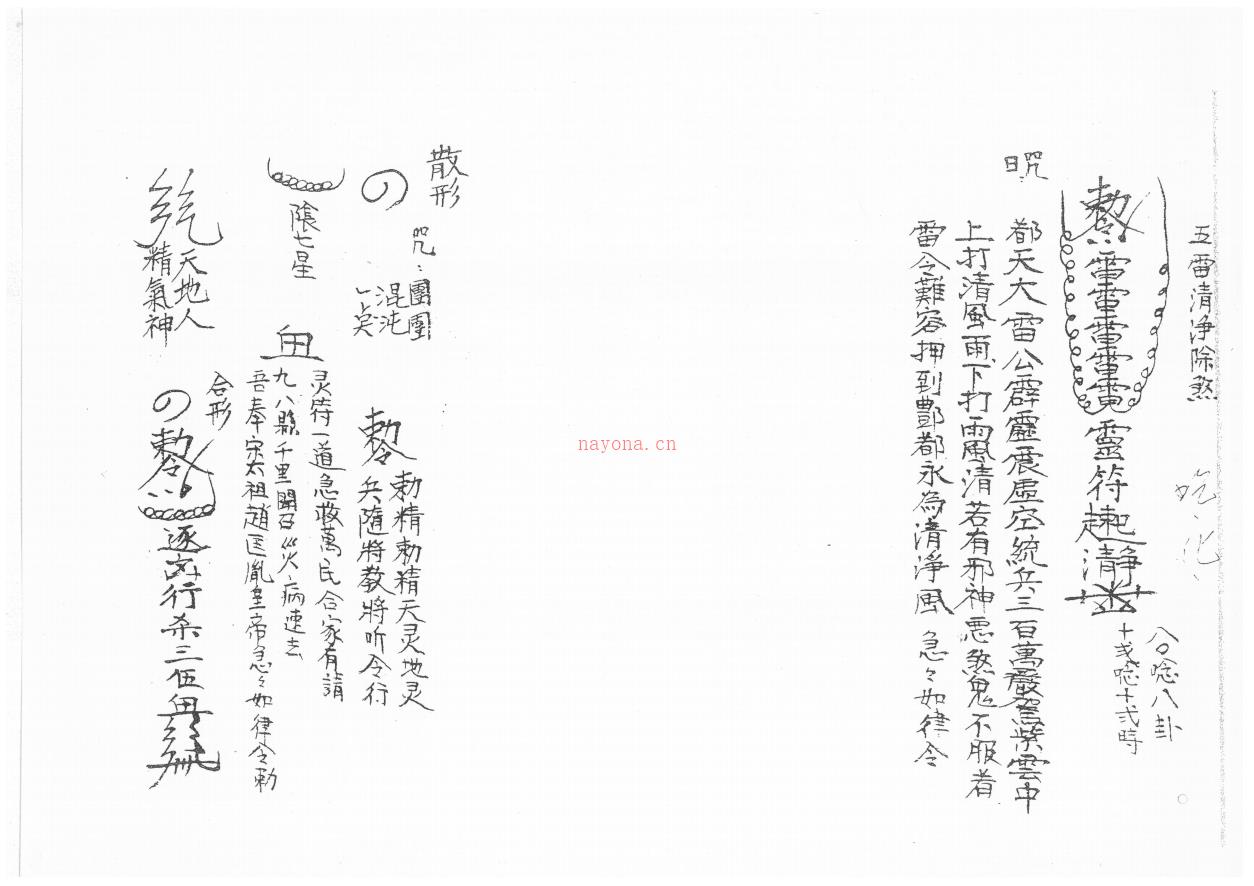 五雷清净除煞
敕令雷雷雷雷雷靈符起清静
八唸八卦
十弍唸十弍時
咒曰
都天大雷公霹靂震虛空統兵三百萬嚴駕紫雲中
上打清風雨下打雨風清若有邪神惡煞鬼不服者
雷令難容押到酆都永為清淨風 急々如律令
nayona.cn
散形
咒:團團
混沌
敕令
勅精勅精天灵地灵
兵隨將教將听令行
七星
灵符一道急救萬民合家有請
九八縣千里開召災病速去
吾奉宋太祖趙匡胤皇帝急々如律令勅
天地人
精氣神
合形
敕令
逐 行杀三伍